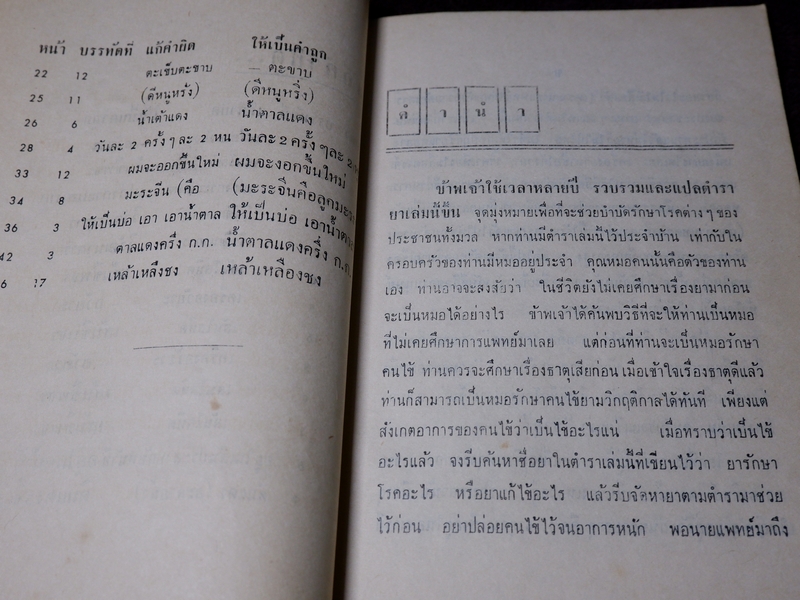 หน้า บรรทัดที่ แก้คำผิด ให้เป็นคำถูก
22 12 ตะเข็บตะขาบ – ตะขาบ
25 11 (ดีหนูหรั่ง) (ดีหนูหริ่ง)
26 6 น้ำเต้าแดง น้ำตาลแดง
28 4 วันละ 2 ครั้งๆละ 2 หน วันละ 2 ครั้ง ๆละ 2
33 12 ผมจะออกขึ้นใหม่ ผมจะงอกขึ้นใหม่
34 8 มะระจีน (คือ (มะระจีนคือลูกมะระ
36 3 ให้เป็นบ่อ เอา เอาน้ำตาล ให้เป็นบ่อ เอาน้ำตา
42 3 ตาลแดงครึ่ง ก.ก. น้ำตาลแดงครึ่ง ก.ก.
6 17 เหล้าเหลืงชง เหล้าเหลืองชง
คำนำ
ข้าพเจ้าใช้เวลาหลายปี รวบรวมและแปลตำรา
ยาเล่มนี้ขึ้น จุดมุ่งหมายเพื่อที่จะช่วยบำบัดรักษาโรคต่าง ๆ ของ
ประชาชนทั้งมวล หากท่านมีตำราเล่มนี้ไว้ประจำบ้าน เท่ากับใน
ครอบครัวของท่านมีหมออยู่ประจำ คุณหมอคนนั้นคือตัวของท่าน
เอง ท่านอาจจะสงสัยว่า ในชีวิตยังไม่เคยศึกษาเรื่องยามาก่อน
จะเป็นหมอได้อย่างไร ข้าพเจ้าได้ค้นพบวิธีที่จะให้ท่านเป็นหมอ
ที่ไม่เคยศึกษาการแพทย์มาเลย แต่ก่อนที่ท่านจะเป็นหมอรักษา
คนไข้ ท่านควรจะศึกษาเรื่องธาตุเสียก่อน เมื่อเข้าใจเรื่องธาตุดีแล้ว
ท่านก็สามารถเป็นหมอรักษาคนไข้ยามวิกฤติกาลได้ทันที เพียงแต่
สังเกตอาการของคนไข้ว่าเป็นไข้อะไรแน่ เมื่อทราบว่าเป็นไข้
อะไรแล้ว จงรีบค้นหาชื่อยาในตำราเล่มนี้ที่เขียนไว้ว่า ยารักษา
โรคอะไร หรือยาแก้ไข้อะไร แล้วรีบจัดหายาตามตำรามาช่วย
ไว้ก่อน อย่าปล่อยคนไข้ไว้จนอาการหนัก พอนายแพทย์มาถึง